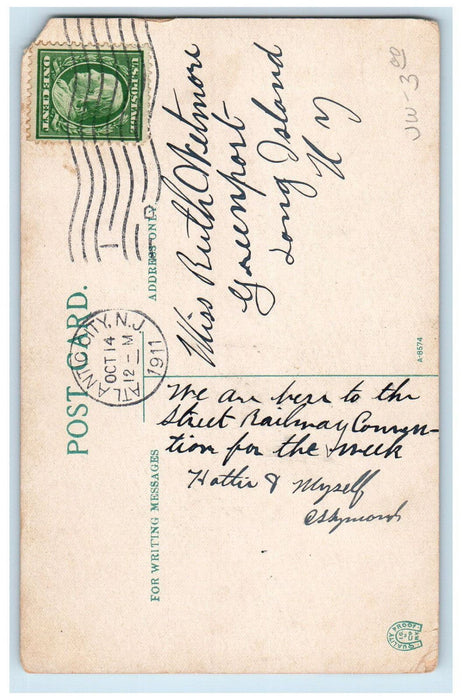 POST CARD.
U.S. POSTAGE
ONE CENT
ATLANTIC CITY, N.J.
OCT 14
12-M
1911
FOR WRITING MESSAGES
ADDRESS ONLY
We are here to the
Street Railway Conven-
tion for the week
Hattie & Myself
Miss Ruth Wetmore
Greenport
Long Island
N Y
JW 3 00
A-8574